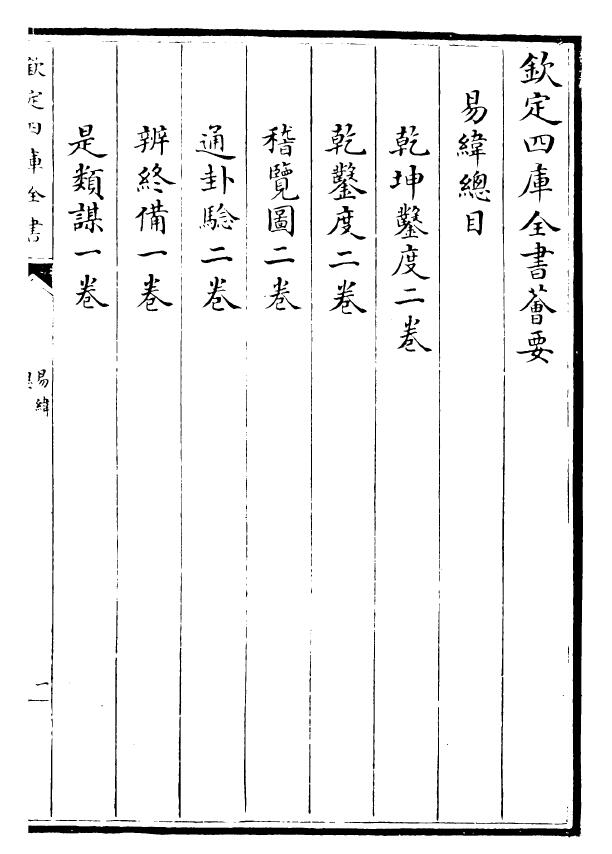 欽定四庫全書薈要
易緯總目
乾坤鑿度二卷
乾鑿度二卷
稽覽圖二卷
通卦驗二卷
辨終備一卷
是類謀一卷
欽定四庫全書
易緯
一